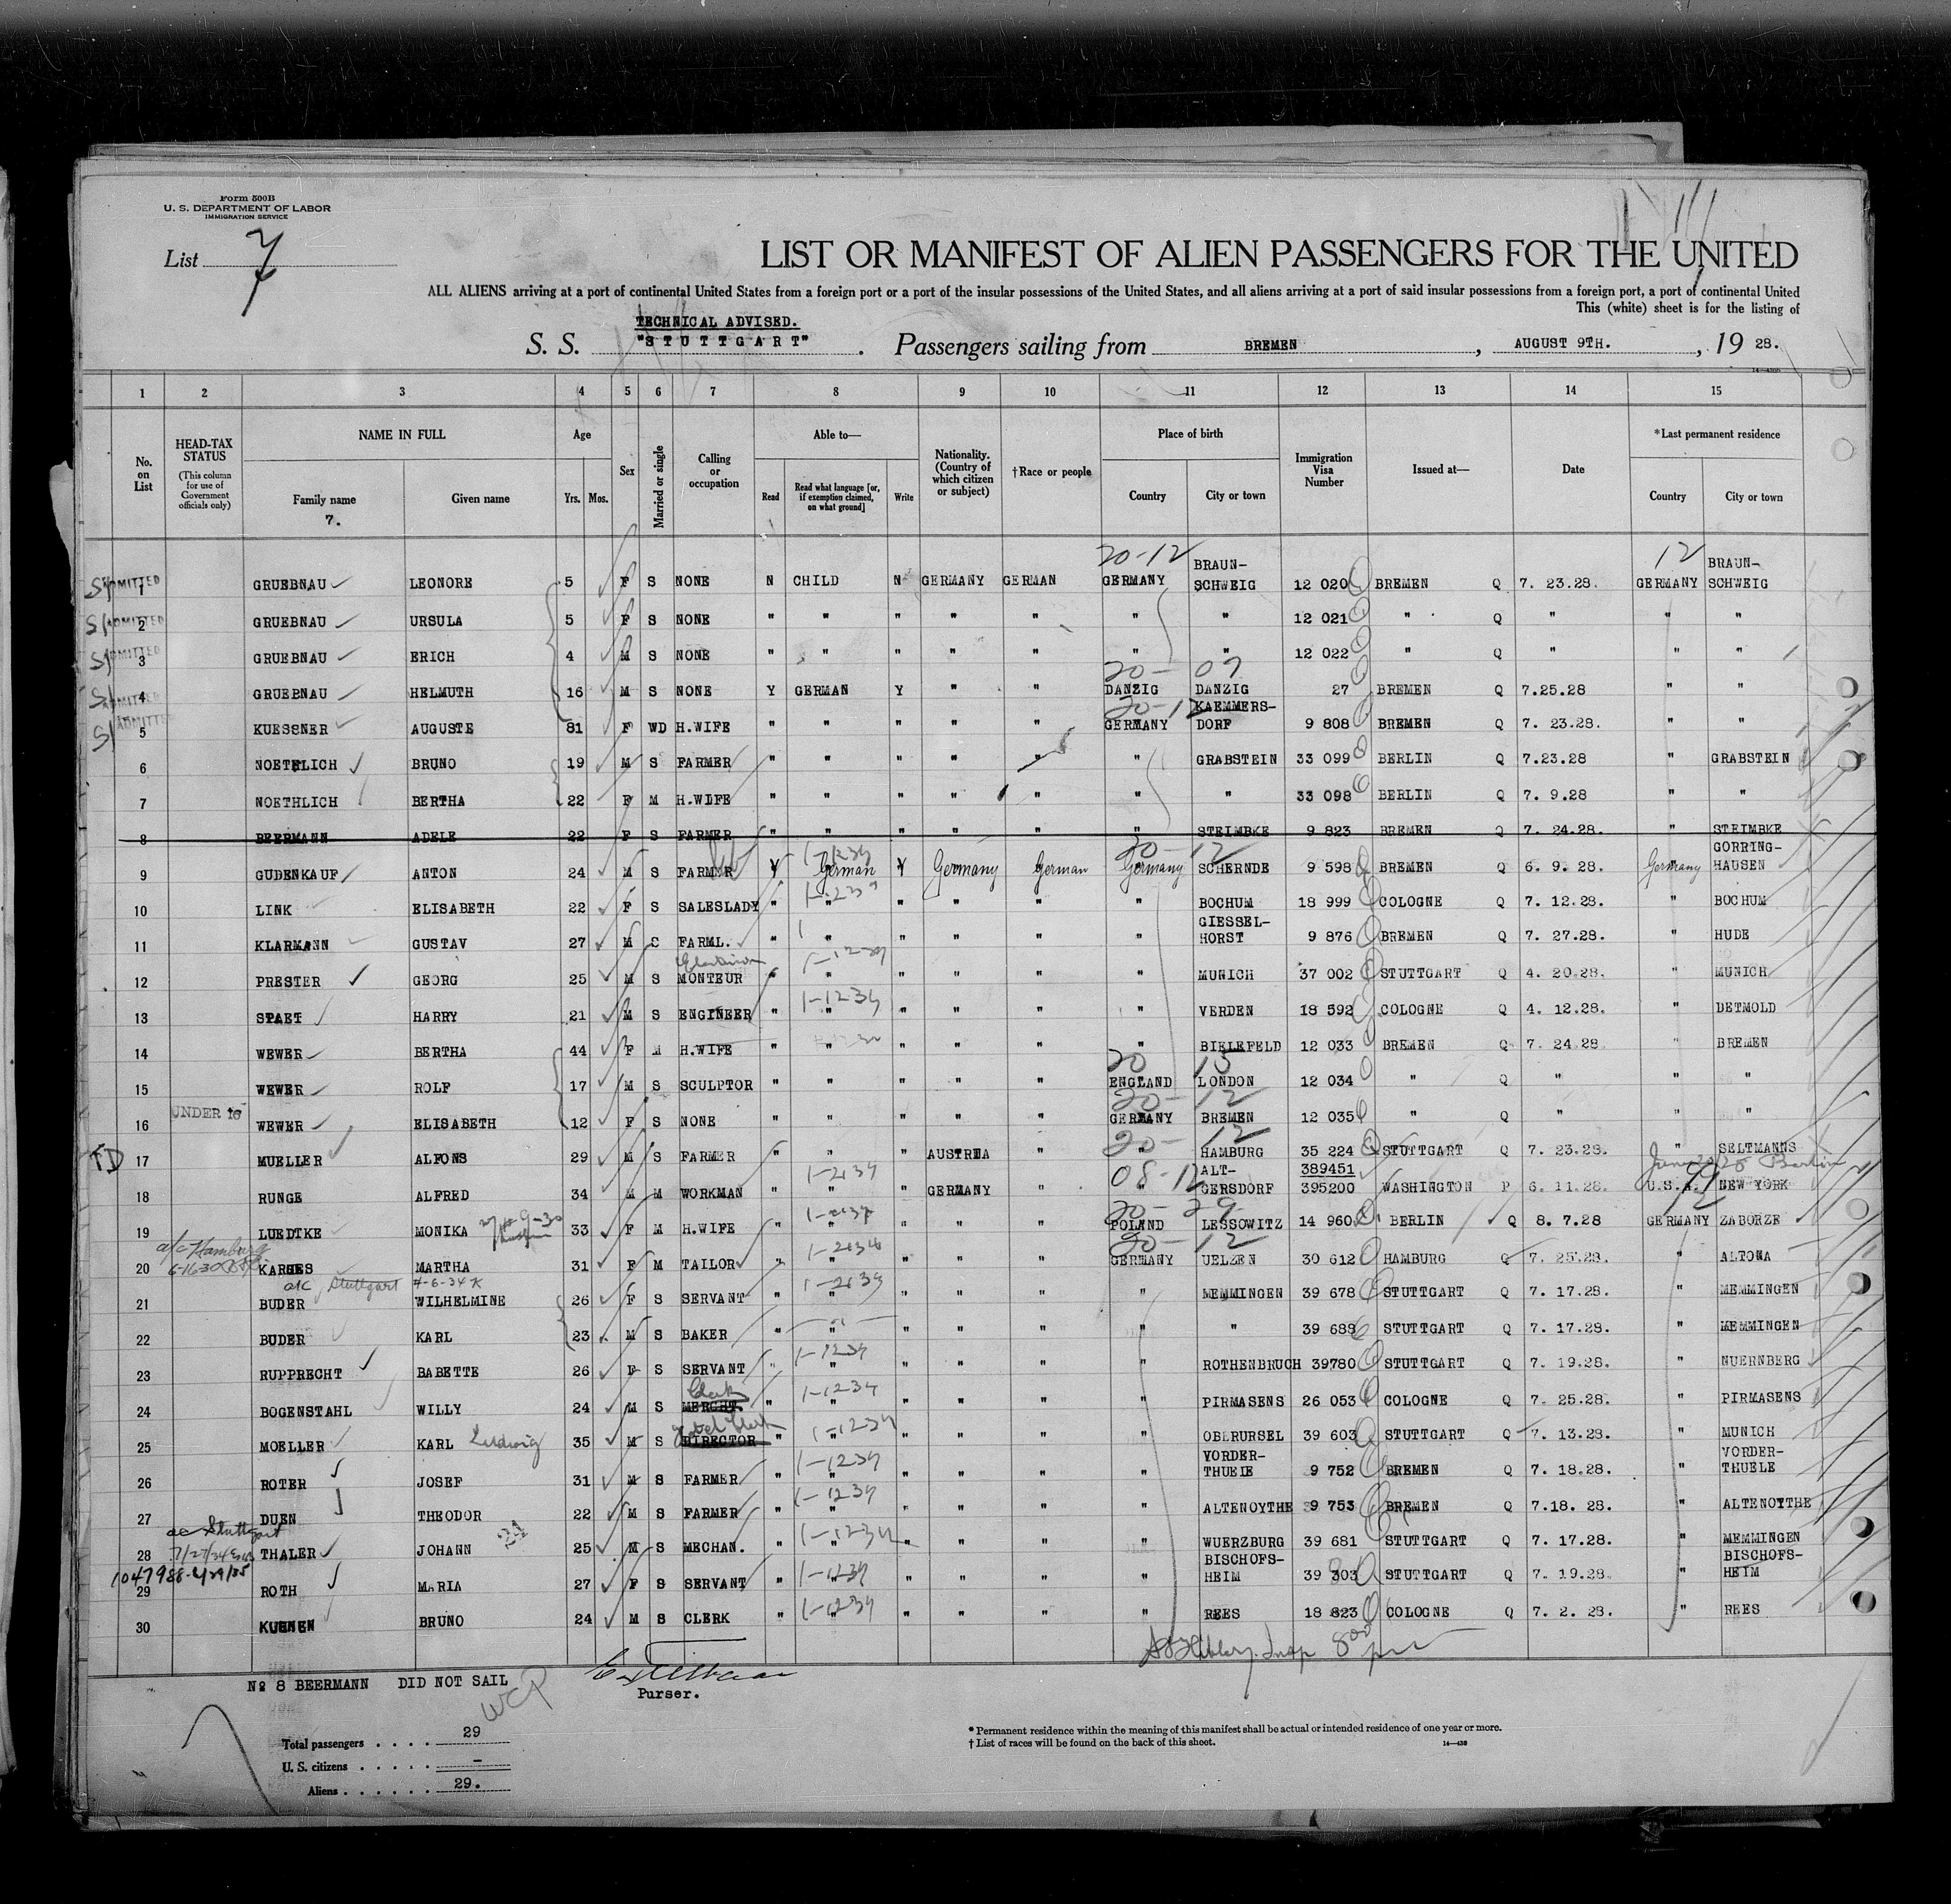 Form 500B
U. S. DEPARTMENT OF LABOR
IMMIGRATION SERVICE
List 7
LIST OR MANIFEST OF ALIEN PASSENGERS FOR THE UNITED
ALL ALIENS arriving at a port of continental United States from a foreign port or a port of the insular possessions of the United States, and all aliens arriving at a port of said insular possessions from a foreign port, a port of continental United
This (white) sheet is for the listing of
TECHNICAL ADVISED.
S. S. "STUTTGART". Passengers sailing from BREMEN, AUGUST 9TH., 19 28.
14-4205
1 2 3 4 5 6 7 8 9 10 11 12 13 14 15
No. on List
HEAD-TAX STATUS (This column for use of Government officials only)
NAME IN FULL
Family name
7.
Given name
Age
Yrs. Mos.
Sex
Married or single
Calling or occupation
Able to—
Read
Read what language [or, if exemption claimed, on what ground]
Write
Nationality. (Country of which citizen or subject)
†Race or people
Place of birth
Country
City or town
Immigration Visa Number
Issued at—
Date
*Last permanent residence
Country
City or town
20-12 12
ADMITTED 1 GRUEBNAU LEONORE 5 F S NONE N CHILD N GERMANY GERMAN GERMANY BRAUN-SCHWEIG 12 020 BREMEN Q 7. 23.28. GERMANY BRAUN-SCHWEIG
ADMITTED 2 GRUEBNAU URSULA 5 F S NONE " " " " " " " 12 021 " Q " " "
ADMITTED 3 GRUEBNAU ERICH 4 M S NONE " " " " " " " 12 022 " Q " " "
20- 07
ADMITTED 4 GRUEBNAU HELMUTH 16 M S NONE Y GERMAN Y " " DANZIG DANZIG 27 BREMEN Q 7.25.28 " "
20-12
ADMITTED 5 KUESSNER AUGUSTE 81 F WD H.WIFE " " " " " GERMANY KAEMMERS-DORF 9 808 BREMEN Q 7. 23.28. " "
6 NOETHLICH BRUNO 19 M S FARMER " " " " " " GRABSTEIN 33 099 BERLIN Q 7.23.28 " GRABSTEIN
7 NOETHLICH BERTHA 22 F M H.WIFE " " " " " " " 33 098 BERLIN Q 7. 9.28 " "
8 BEERMANN ADELE 22 F S FARMER " " " " " " STEIMBKE 9 823 BREMEN Q 7. 24.28. " STEIMBKE
1-1234 20- 12
9 GUDENKAUF ANTON 24 M S FARMER Y German Y Germany German Germany SCHERNDE 9 598 BREMEN Q 6. 9. 28. Germany GORRING-HAUSEN
10 LINK ELISABETH 22 F S SALESLADY " " " " " " BOCHUM 18 999 COLOGNE Q 7. 12.28. " BOCHUM
11 KLARMANN GUSTAV 27 M S FARML. " " " " " " GIESSEL-HORST 9 876 BREMEN Q 7. 27.28. " HUDE
12 PRESTER GEORG 25 M S MONTEUR " " " " " " MUNICH 37 002 STUTTGART Q 4. 20.28. " MUNICH
1-1234
13 SPAET HARRY 21 M S ENGINEER " " " " " " VERDEN 18 592 COLOGNE Q 4. 12.28. " DETMOLD
14 WEWER BERTHA 44 F M H.WIFE " " " " " " BIELEFELD 12 033 BREMEN Q 7. 24.28. " BREMEN
20 15
15 WEWER ROLF 17 M S SCULPTOR " " " " " ENGLAND LONDON 12 034 " Q " " "
20- 12
UNDER 16 16 WEWER ELISABETH 12 F S NONE " " " " " GERMANY BREMEN 12 035 " Q " " "
20- 12
TD 17 MUELLER ALFONS 29 M S FARMER " " " AUSTRIA " " HAMBURG 35 224 STUTTGART Q 7. 23.28. " SELTMANNS
1-234 08-12 389451 Berlin
18 RUNGE ALFRED 34 M M WORKMAN " " " GERMANY " " ALT-GERSDORF 395200 WASHINGTON P 6. 11.28. U.S.A. NEW YORK
20- 29 12
19 LUEDTKE MONIKA 33 F M H.WIFE " " " " " POLAND LESSOWITZ 14 960 BERLIN Q 8. 7.28 GERMANY ZABORZE
a/c Hamburg 20- 12
20 KARGES MARTHA 31 F M TAILOR " " " " " GERMANY UELZEN 30 612 HAMBURG Q 7. 25.28. " ALTONA
a/c Stuttgart 4-6-34 K
21 BUDER WILHELMINE 26 F S SERVANT " " " " " " MEMMINGEN 39 678 STUTTGART Q 7. 17.28. " MEMMINGEN
22 BUDER KARL 23 M S BAKER " " " " " " " 39 688 STUTTGART Q 7. 17.28. " MEMMINGEN
1-1234
23 RUPPRECHT BABETTE 26 F S SERVANT " " " " " " ROTHENBRUCH 39780 STUTTGART Q 7. 19.28. " NUERNBERG
Clerk 1-1234
24 BOGENSTAHL WILLY 24 M S MERCHT. " " " " " " PIRMASENS 26 053 COLOGNE Q 7. 25.28. " PIRMASENS
Hotel Clerk 1-1234
25 MOELLER KARL Ludwig 35 M S DIRECTOR " " " " " " OBERURSEL 39 603 STUTTGART Q 7. 13.28. " MUNICH
1-1234
26 ROTER JOSEF 31 M S FARMER " " " " " " VORDER-THUEIE 9 752 BREMEN Q 7. 18.28. " VORDER-THUELE
1-1234
27 DUEN THEODOR 22 M S FARMER " " " " " " ALTENOYTHE 9 753 BREMEN Q 7.18. 28. " ALTENOYTHE
ac Stuttgart 1-1234
28 THALER JOHANN 25 M S MECHAN. " " " " " " WUERZBURG 39 681 STUTTGART Q 7. 17.28. " MEMMINGEN
1-1234
29 ROTH MARIA 27 F S SERVANT " " " " " " BISCHOFS-HEIM 39 303 STUTTGART Q 7. 19.28. " BISCHOFS-HEIM
1-1234
30 KUENEN BRUNO 24 M S CLERK " " " " " " REES 18 823 COLOGNE Q 7. 2. 28. " REES
№ 8 BEERMANN DID NOT SAIL
Purser.
Total passengers . . . . 29
U. S. citizens . . . . . -
Aliens . . . . . . 29.
* Permanent residence within the meaning of this manifest shall be actual or intended residence of one year or more.
† List of races will be found on the back of this sheet.
14—438